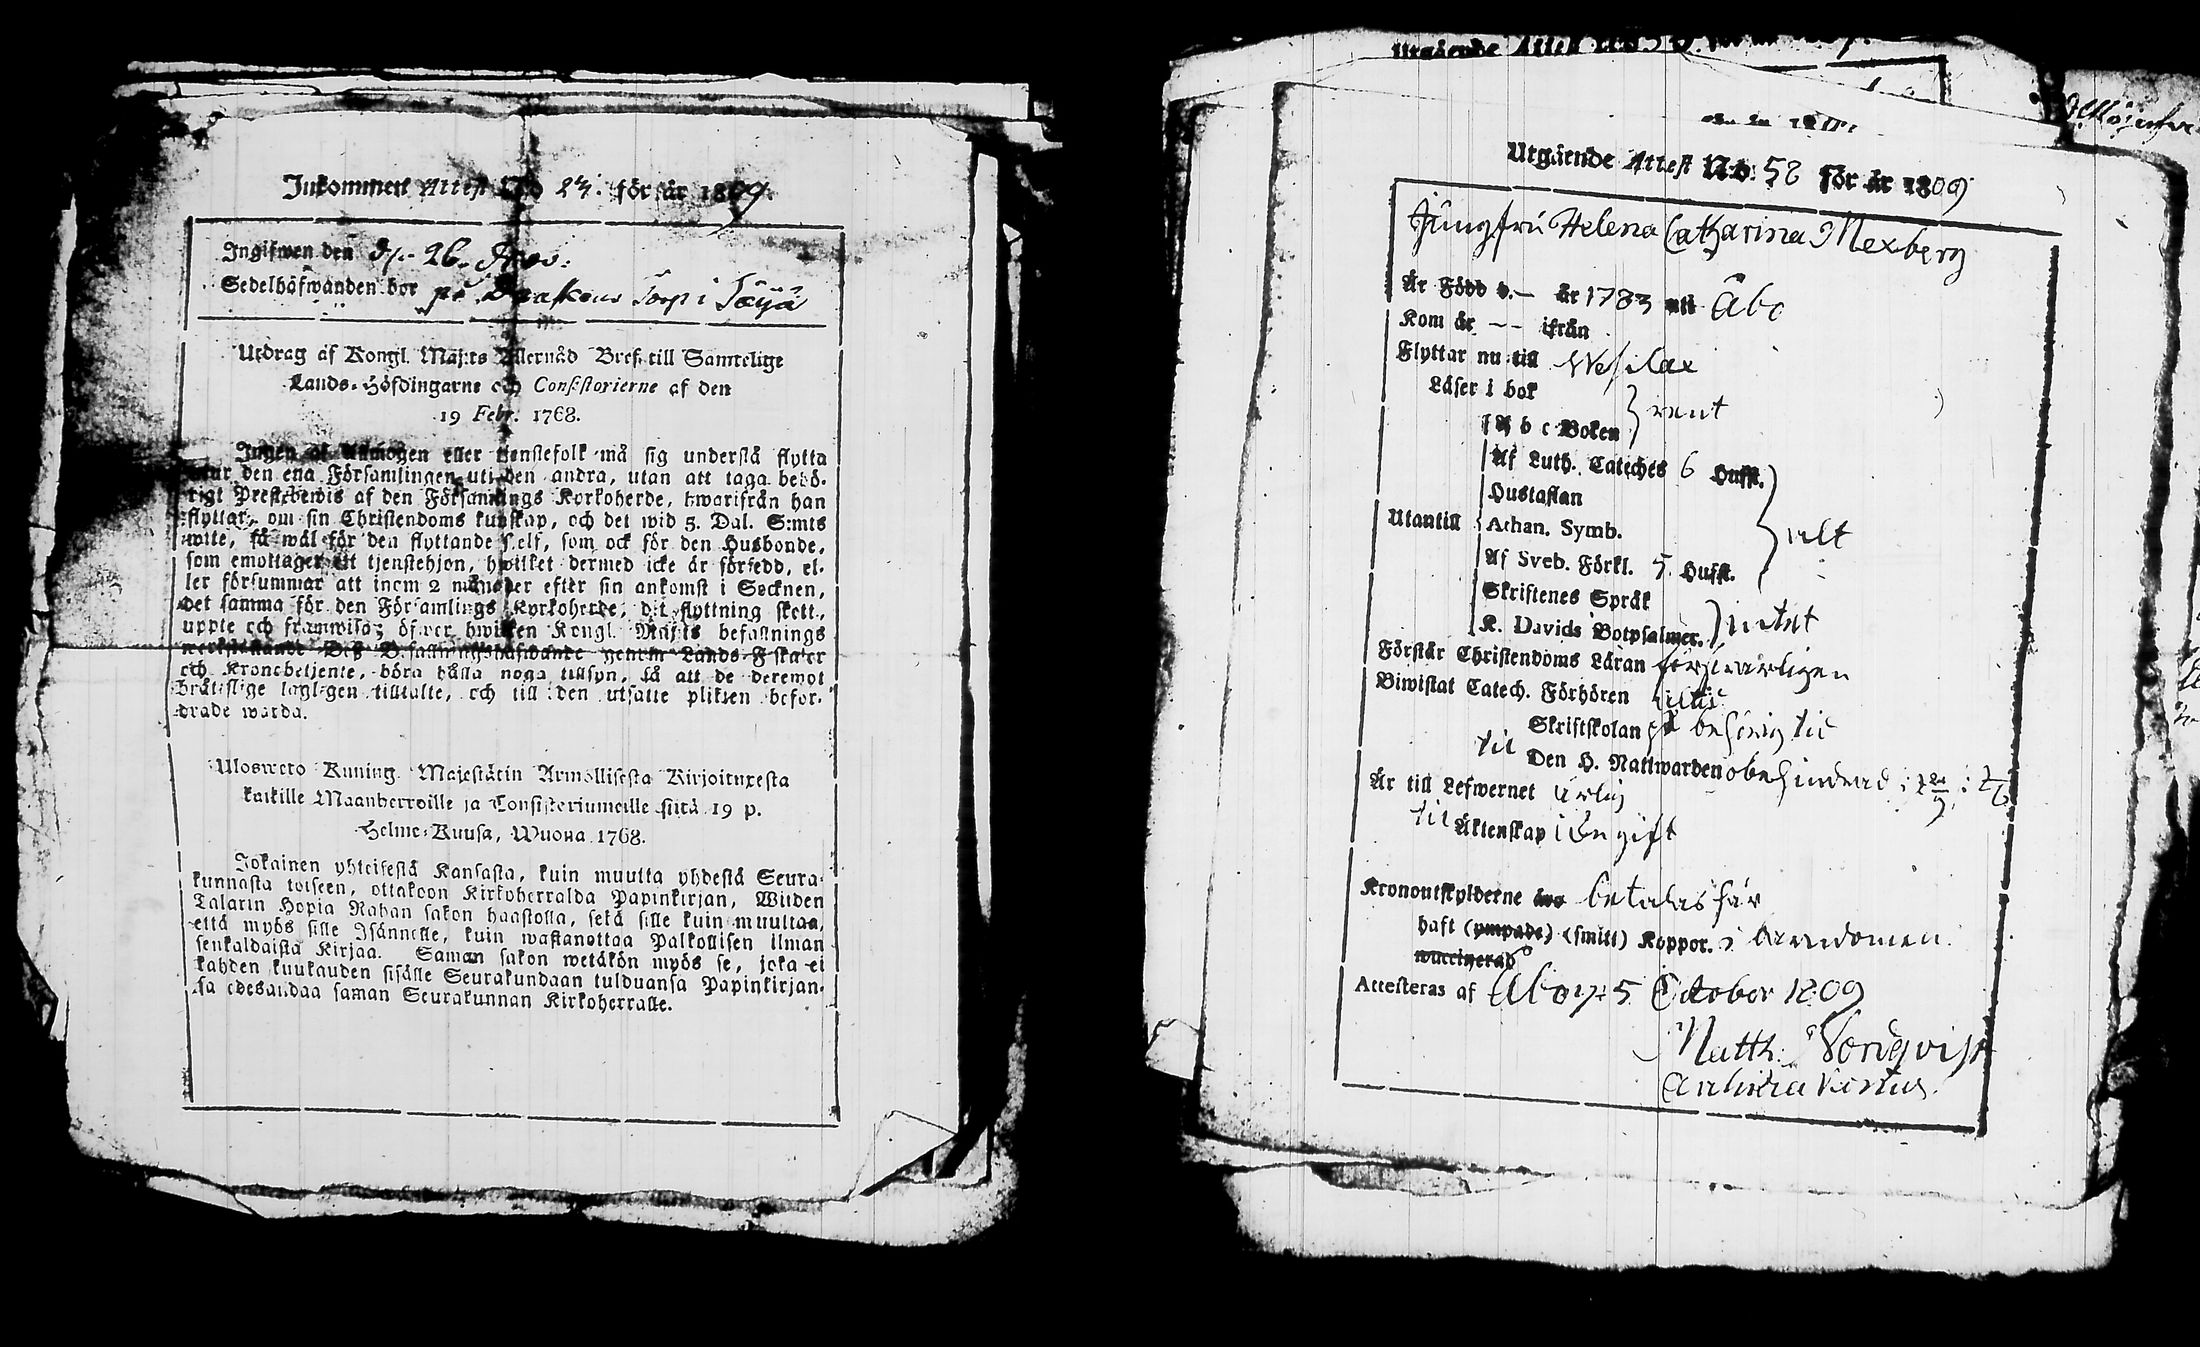 Inkommen Attest No 24. för år 1809.
Ingifwen den 26. Nov:
Sedelhafwanden bor på Torp i
Utdrag af Kongl. Maj:ts Allernåd Bref till Samtelige
Lands-Höfdingarne och Consistorierne af den
19 Febr. 1768.
Ingen af Allmogen eller tienstefolk må sig understå flytta
utur den ena Församlingen uti den andra, utan att taga behö-
rigt Prestebewis af den Församlings Kyrkoherde, hwarifrån han
flyttar, om sin Christendoms kunskap, och det wid 5. Dal. S:mts
wite, så wäl för den flyttande sielf, som ock för den Husbonde,
som emottager ett tjenstehjon, hwilket dermed icke är försedd, el-
ler försummar att inom 2 månader efter sin ankomst i Socknen,
det samma för den Församlings Kyrkoherde, dit flyttning skett,
uppte och framwisa; öfwer hwilken Kongl. Maj:ts befallnings
werkställande Deß Befallningshafwande genom Lands-Fiskaler
och Kronobetjente, böra hålla noga tillsyn, så att de deremot
brätslige lagligen tilltalte, och till den utsatte plikten befor-
drade warda.
Ulosweto Kuning. Majestätin Armollisesta Kirjoituxesta
kaikille Maanherroille ja Consistoriumeille siitä 19 p.
Helme-Kuusa, Wuona 1768.
Jokainen yhteisestä Kansasta, kuin muutta yhdestä Seura-
kunnasta toiseen, ottakoon Kirkoherralda Papinkirjan, Wiiden
Talarin Hopia Rahan sakon haastolla, sekä sille kuin muuttaa,
että myös sille Isännelle, kuin wastanottaa Palkollisen ilman
senkaldaista Kirjaa. Saman sakon wetäkön myös se, joka ei
kahden kuukauden sisälle Seurakundaan tulduansa Papinkirjan-
sa edesandaa saman Seurakunnan Kirkoherralle.
Utgående Attest No. 58 för år 1809
Jungfru Helena Catharina Mexberg
Är Född d.— år 1783 uti Åbo
Kom år — — ifrån
Flyttar nu till Wesilax
Läser i bok
A b c Boken } rent
Af Luth. Cateches 6 Hufst.
Hustaflan
Utantill Athan. Symb. } alt
Af Sveb. Förkl. 5. Hufst.
Skriftenes Språk
K. Davids Botpsalmer. } intet
Förstår Christendoms Läran försvarligen
Biwistat Catech. Förhören
Skriftskolan behörig tid
til Den H. Nattwarden obehindrad
Är till Lefwernet ärlig
til Äktenskap ogift
Kronoutskylderne äro betalas här
haft (ympade) (smitt) Koppor. i barndomen.
waccinerad
Attesteras af Åbo 5 October 1809
Matth. Nordqvist